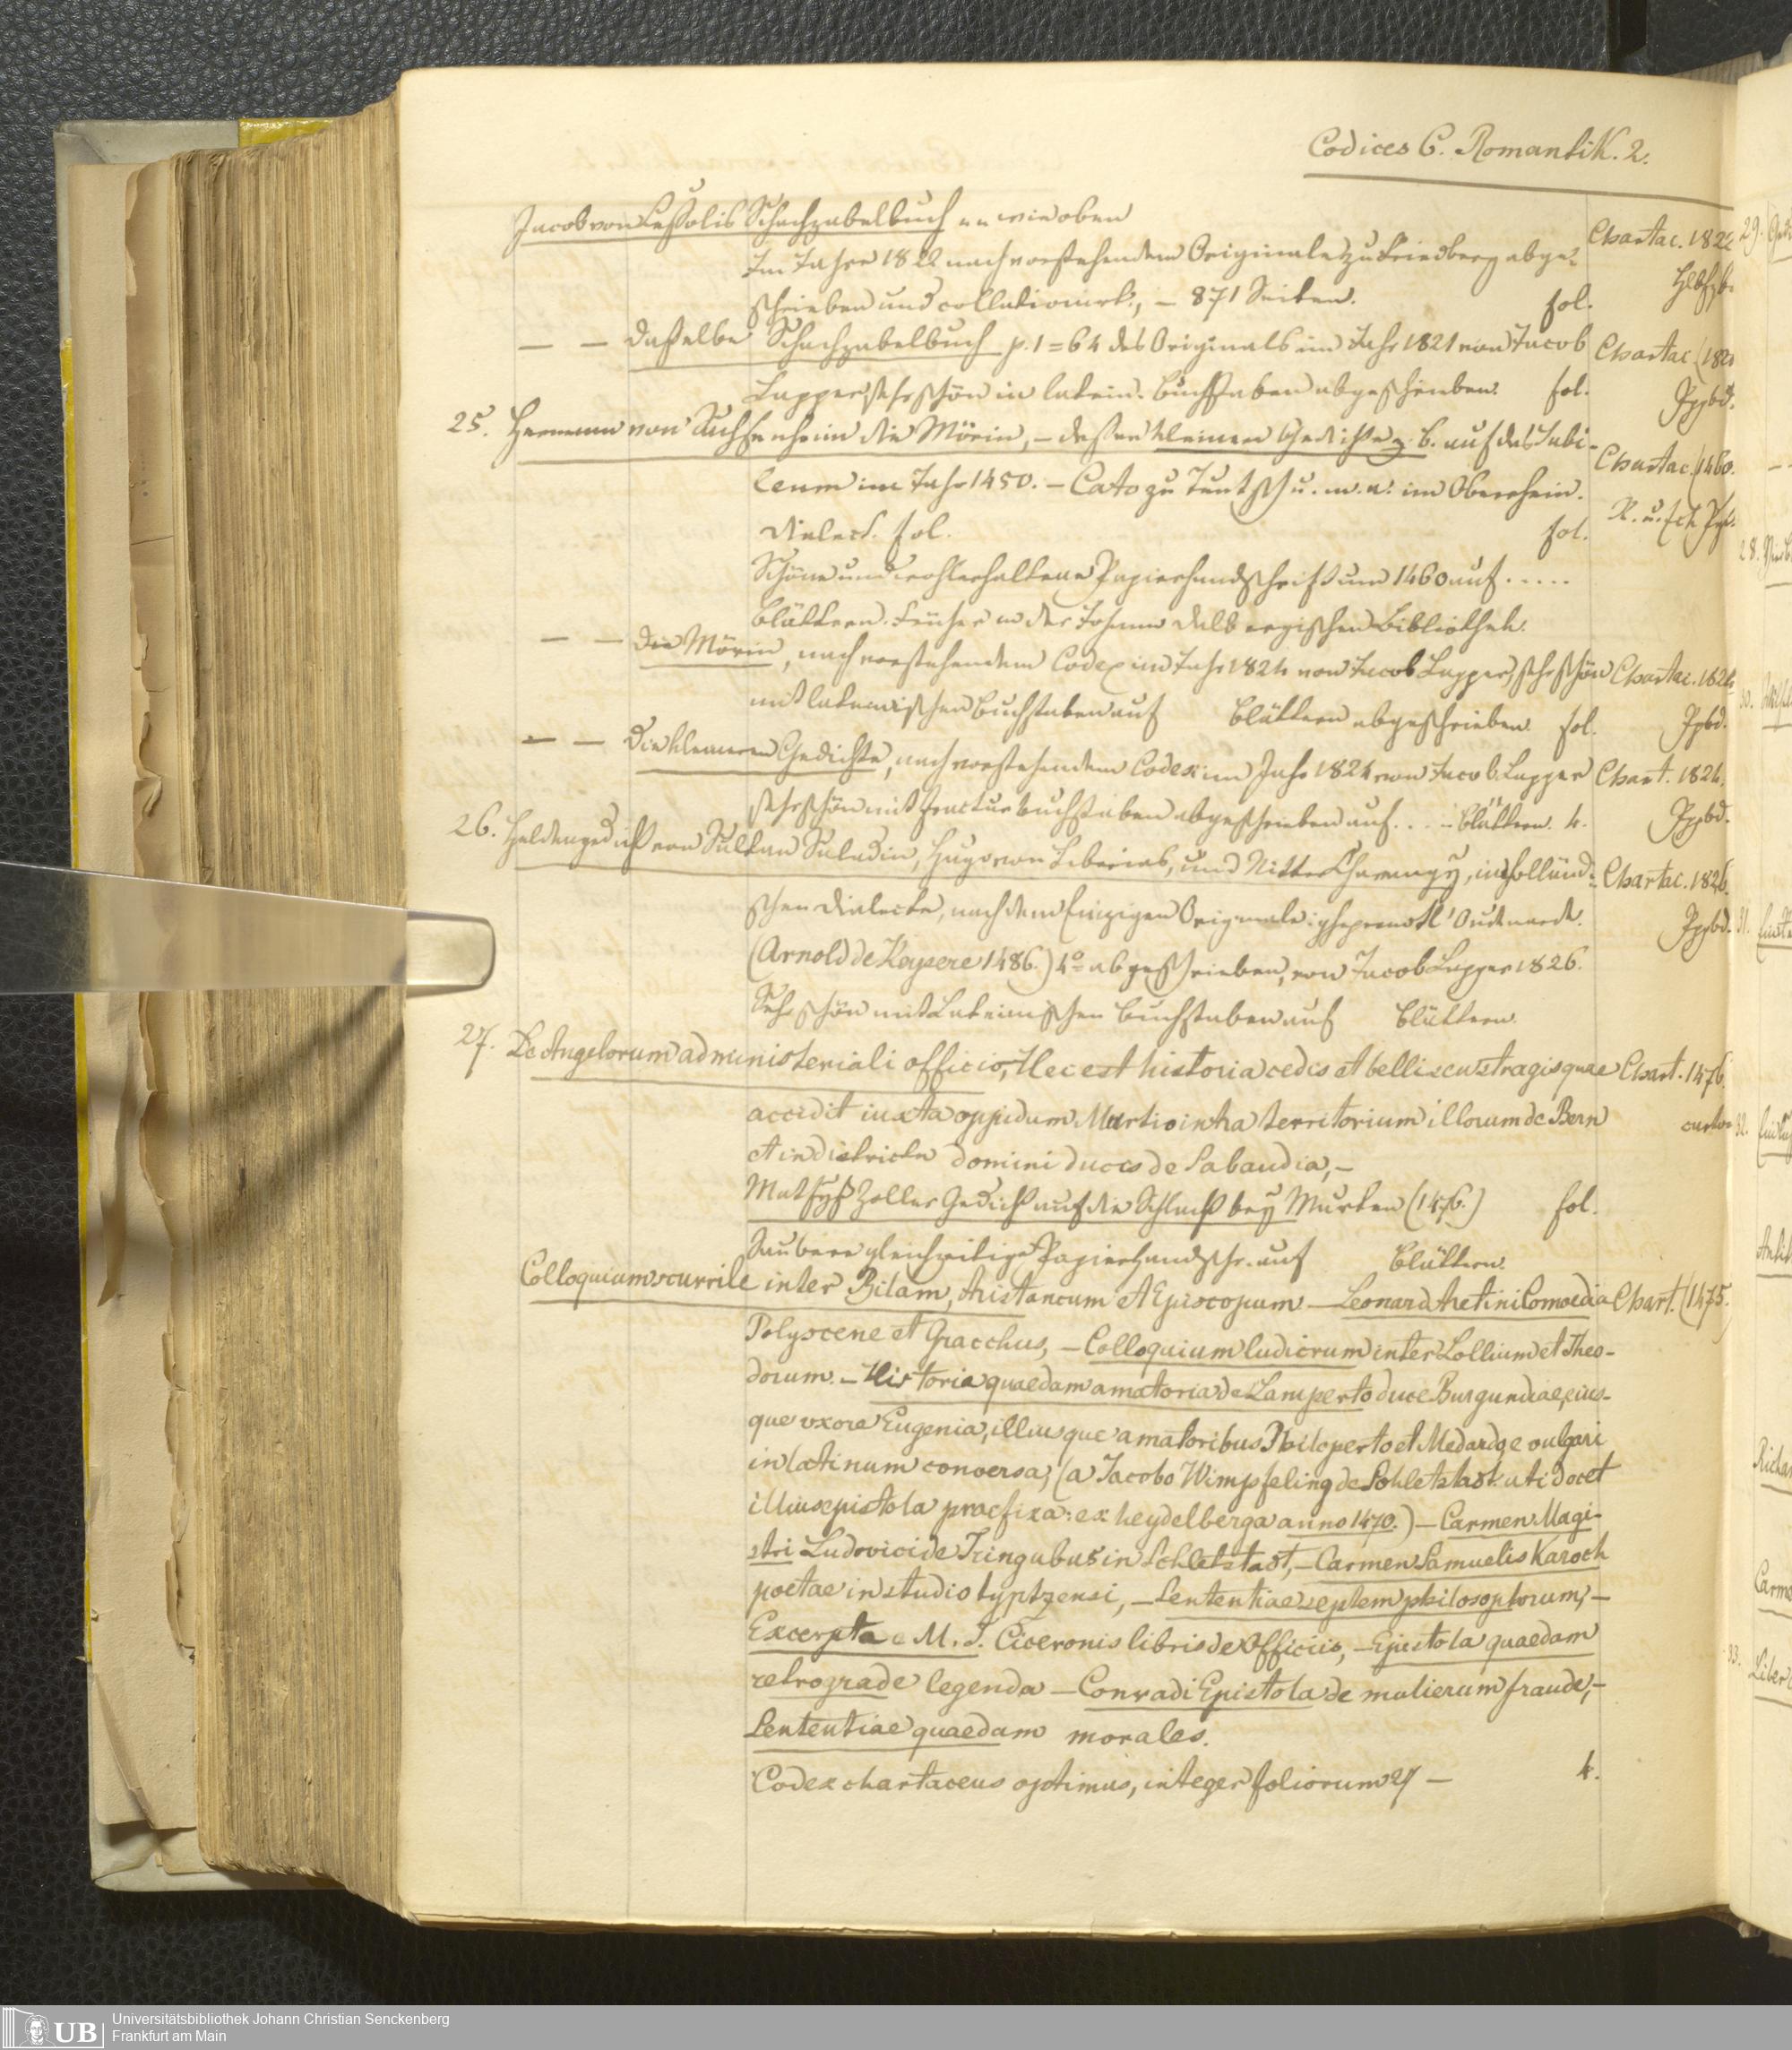 Codices C. Romantik. 2.
Jacob von Cessolis Schachzabelbuch " " wie oben
Im Jahre 1822 nach vorstehendem Originale zu Friedberg abge-
Chartac. 1822
schrieben und collationirt, – 871 Seiten. fol.
Hlbfzb.
— — Dasselbe Schachzabelbuch p. 1=64 des Originals im Jahr 1821 von Jacob
Chartac (182
Lapper, sehr schön in latein. Buchstaben abgeschrieben. fol.
Ppbd.
25. Hermann von Sachsenheim die Mörin, – dessen kleinere Gedichte z. B. auf das Jubi-
Chartac. (1460.
leum im Jahr 1450. – Cato zu Teutsch u. m. a. im Oberrhein.
R. u. Eck Pgt.
Dialect. fol. fol.
Schöne und wohlerhaltene Papierhandschrift um 1460 auf . . . . .
Blättern. Früher in der Johann Dalbergischen Bibliothek.
— — Die Mörin, nach vorstehendem Codex im Jahr 1824 von Jacob Lapper, sehr schön
Chartac. 1824
mit lateinischen Buchstaben auf Blättern abgeschrieben. fol.
Ppbd.
— — Die kleineren Gedichte, nach vorstehendem Codex im Jahr 1824 von Jacob Lapper
Chart. 1824.
sehr schön mit Fracturbuchstaben abgeschrieben auf . . . Blättern. 4.
Ppbd.
26. Heldengedicht von Sultan Saladin, Hugo von Tiberias, und Ritter, in Holländ-
Chartac. 1826.
schen Dialecte, nach dem Einzigen Originale: gheprent tl' Oudenaerde.
Ppbd.
(Arnold de Keysere 1486.) 4º abgeschrieben, von Jacob Lapper 1826.
Sehr schön mit Lateinischen Buchstaben auf Blättern.
27. De Angelorum administeriali officio, Hec est historia cedis et belli seu stragis quae
Chart. 1476.
accidit iuxta oppidum Murtio intra territorium illorum de Bern
et in districtu domini ducis de Sabaudia, –
Mathyß Zollers Gedicht auf die Schlacht bey Murten (1476.) fol.
Saubere gleichzeitige Papierhandschr. auf Blättern.
Colloquium scurrile inter Bilam, Aristancum et Episcopum – Leonard Aretini Comoedia
Chart. (1475.
Polyscene et Gracchus, – Colloquium ludicrum inter Lollium et Theo-
dorum. – Historia quaedam amatoria de Lamperto duce Burgundiae, eius-
que uxore Eugenia, illiusque amatoribus Philoperto et Medardo, e vulgari
in latinum conversa, (a Jacobo Wimpfeling de Schletstadt uti docet
illius epistola praefixa: ex heydelberga anno 1470.) – Carmen Magi-
stri Ludovici de Tringubus in Schletstadt, – Carmen Samuelis Karoch
poetae in studio lyptzensi, – Sententiae septem philosophorum, –
Excerpta e M. T. Ciceronis libris de Officiis, – Epistola quaedam
retrograde legenda – Conradi Epistola de mulierum fraude, –
Sententiae quaedam morales.
Codex chartaceus optimus, integer foliorum 27 – 4.
UB
Universitätsbibliothek Johann Christian Senckenberg
Frankfurt am Main